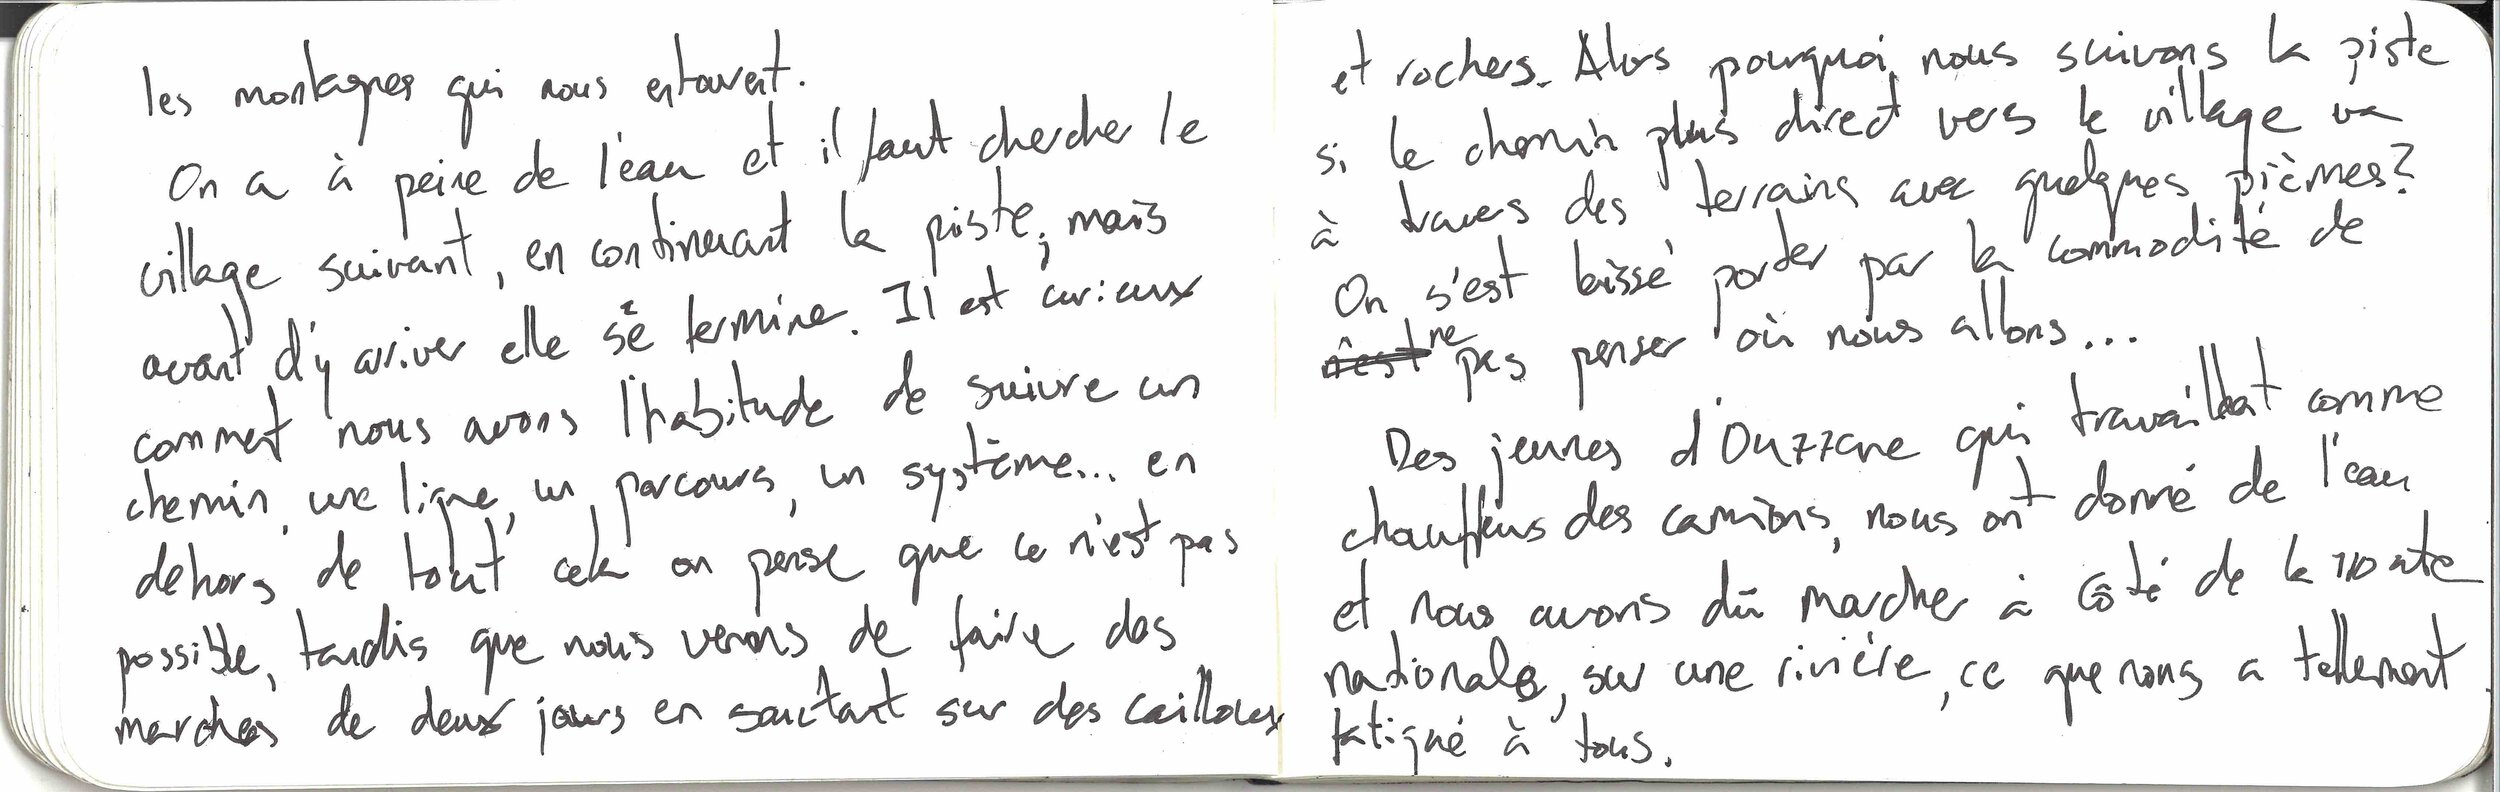 les montagnes qui nous entourent.
On a à peine de l'eau et il faut chercher le
village suivant, en continuant la piste, mais
avant d'y arriver elle se termine. Il est curieux
comment nous avons l'habitude de suivre un
chemin, une ligne, un parcours, un système... en
dehors de tout cela on pense que ce n'est pas
possible, tandis que nous venons de faire des
marches de deux jours en sautant sur des cailloux
et rochers. Alors pourquoi nous suivons la piste
si le chemin plus direct vers le village va
à travers des terrains avec quelques pièrres?
On s'est laissé porter par la commodité de
ne pas penser où nous allons...
Des jeunes d'Ouzzane qui travaillent comme
chauffeurs des camions, nous ont donné de l'eau
et nous avons dû marcher à côté de la route
nationale, sur une rivière, ce que nous a tellement
fatigué à tous.